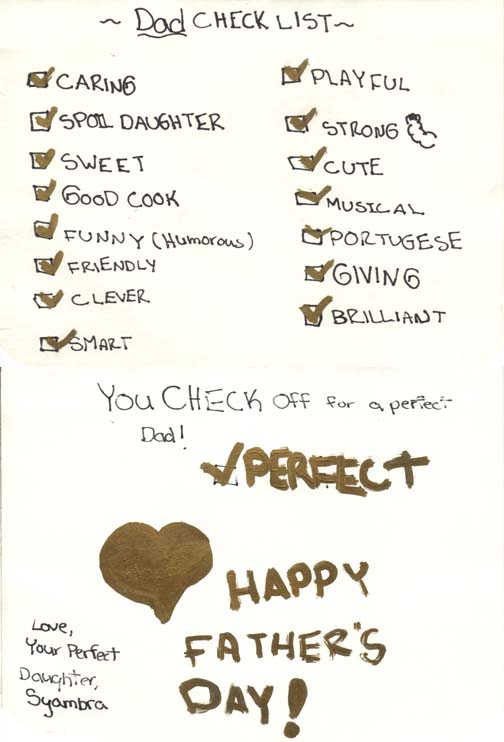 ~ Dad CHECK LIST ~
CARING
SPOIL DAUGHTER
SWEET
GOOD COOK
FUNNY (Humorous)
FRIENDLY
CLEVER
SMART
PLAYFUL
STRONG
CUTE
MUSICAL
PORTUGESE
GIVING
BRILLIANT
You CHECK Off for a perfect
Dad!
PERFECT
HAPPY
FATHER'S
DAY!
Love,
Your Perfect
Daughter,
Syambra